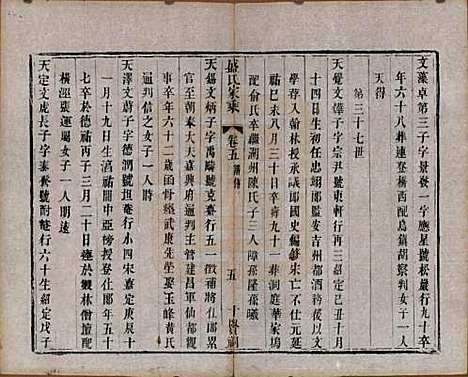 文藻卓第三子字景晉一字應星號松巖行九十卒
年六十八葬連登橋西配烏鎮胡察判女子一人
天得
第三十七世
天覺文煒子字宗尹號東軒行再一紹定己丑十月
十四日生初任忠翊郎監安吉州都酒務後以文
學舉入翰林授承議郎國史編修宋亡不仕元延
祐己未八月三十日卒壽九十一葬洞庭華家塢
配俞氏卒繼湖州陳氏子三人隆孫隆孫曦
盛氏家乘
卷五
譜傳
五
十賢祠
天錫文炳子字禹疇號克齋行五一徵補將仕郎累
官至朝奉大夫嘉興通判生嘉定仙都觀
事卒年六十二歲函骨經武康先塋聚王峰黃氏
通判信之女子一人時
天澤文蔚子字德潤號坦菴行小四宋嘉定庚辰十
一月十九日生淄祐中亞傍授登仕郎年五十
七卒於德祐丙子三月二十日瘞於觀林僧壇配
橫涇張運屬女子一人明遠
天定文虎長子字泰叔號酎菴行六十生紹定戊子